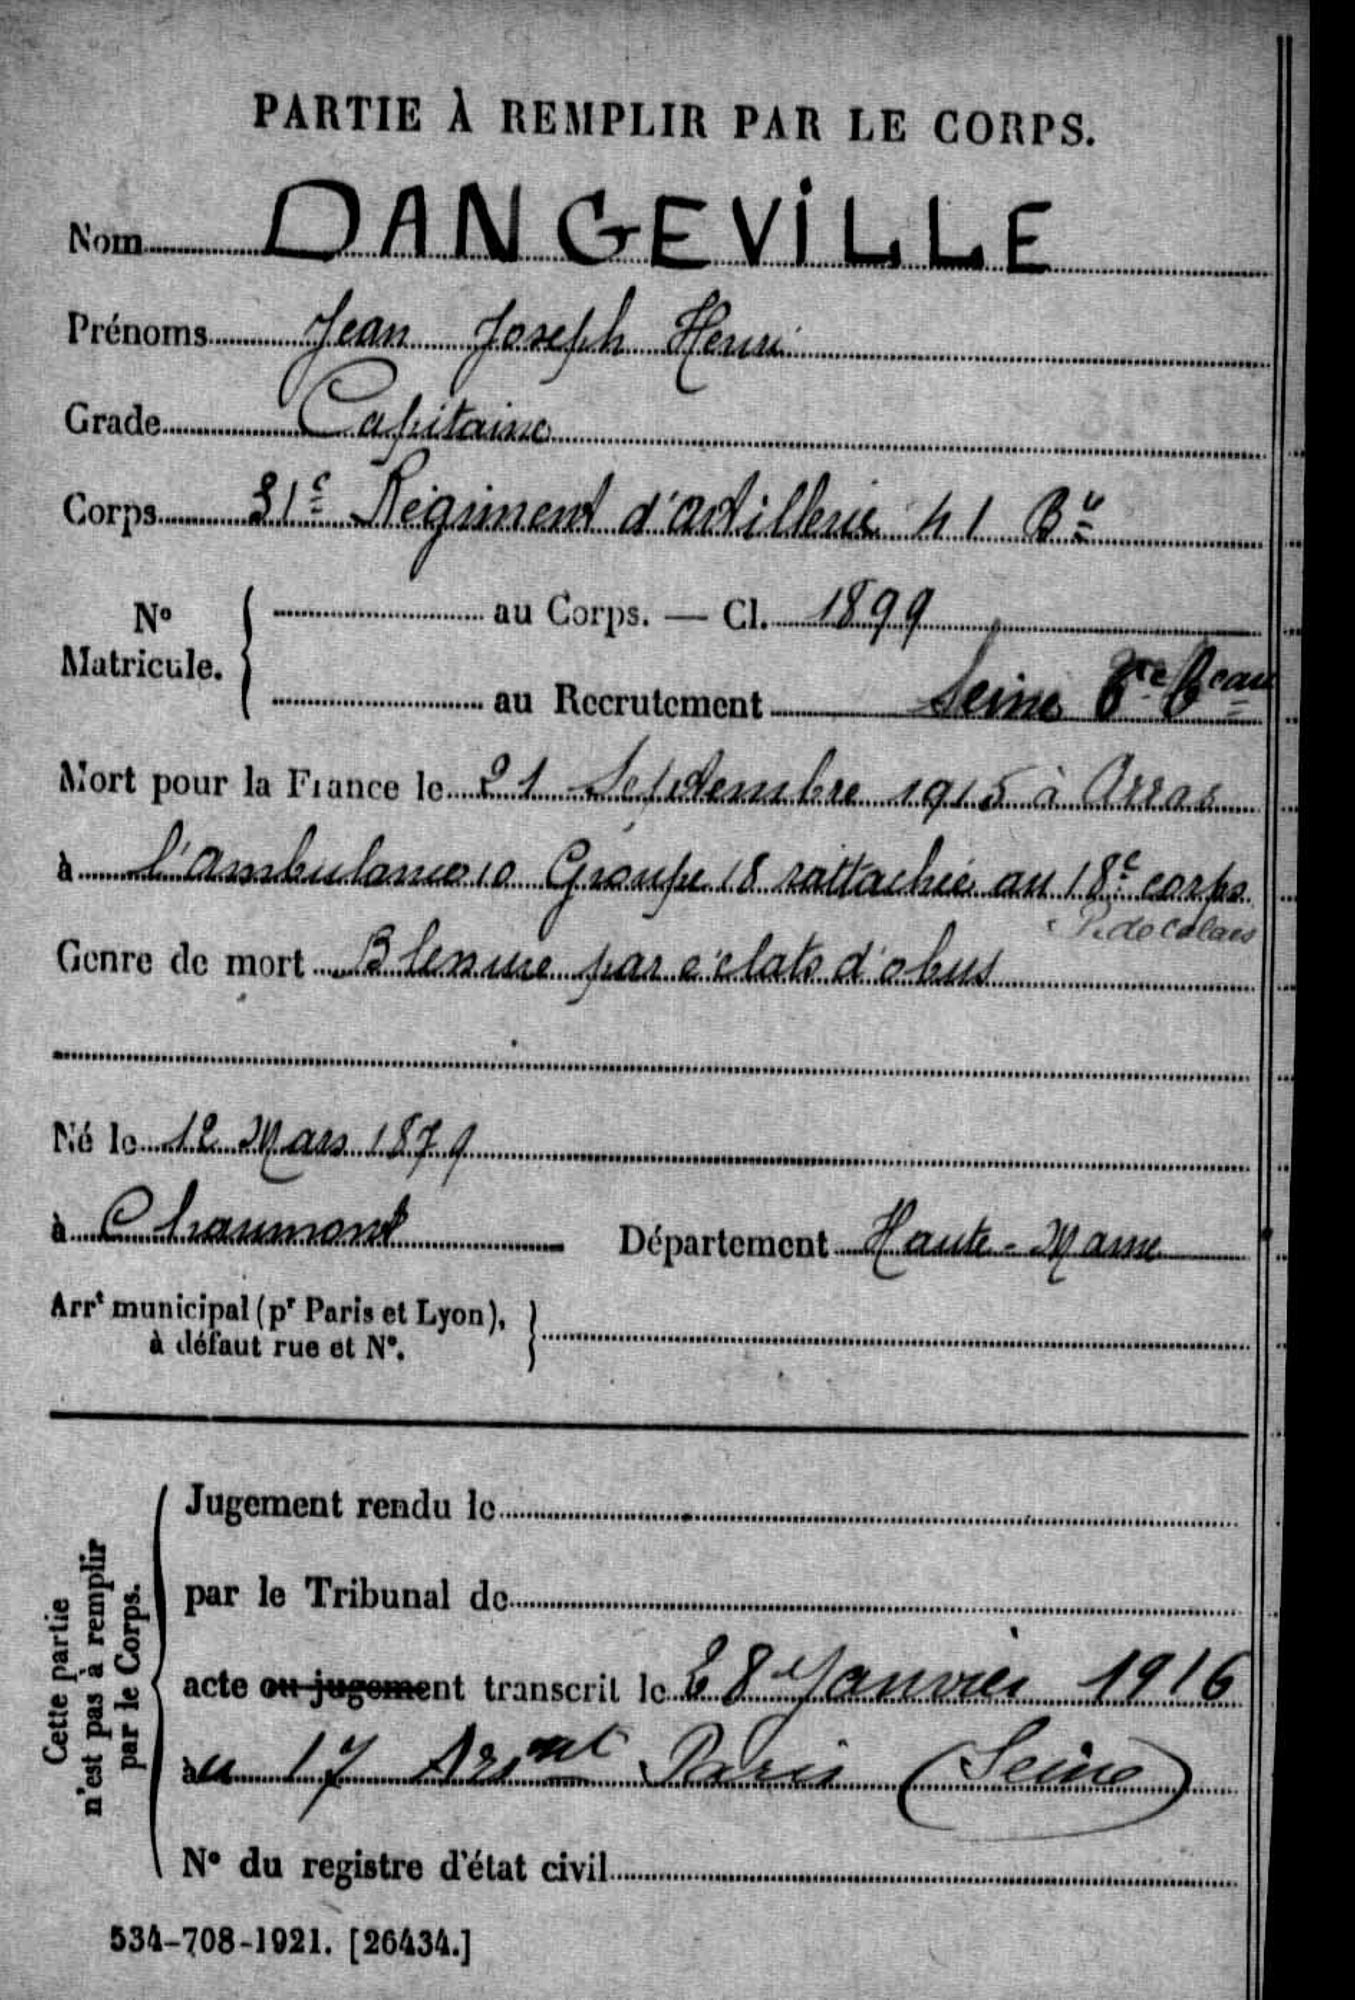 PARTIE À REMPLIR PAR LE CORPS.
Nom DANGEVILLE
Prénoms Jean Joseph Henri
Grade Capitaine
Corps 31e Régiment d'artillerie 41 Bie
No Matricule. { au Corps. — Cl. 1899
au Recrutement Seine
Mort pour la France le 21 Septembre 1915 à Arras
à l'ambulance 10 Groupe 18 rattachée au 18e corps
P. de Calais
Genre de mort Blessure par éclats d'obus
Né le 12 Mars 1879
à Chaumont Département Haute-Marne
Arrt municipal (pr Paris et Lyon), }
à défaut rue et No.
Cette partie
n'est pas à remplir
par le Corps.
Jugement rendu le
par le Tribunal de
acte ou jugement transcrit le 28 Janvier 1916
au 17 Arrmt Paris (Seine)
No du registre d'état civil
534-708-1921. [26434.]